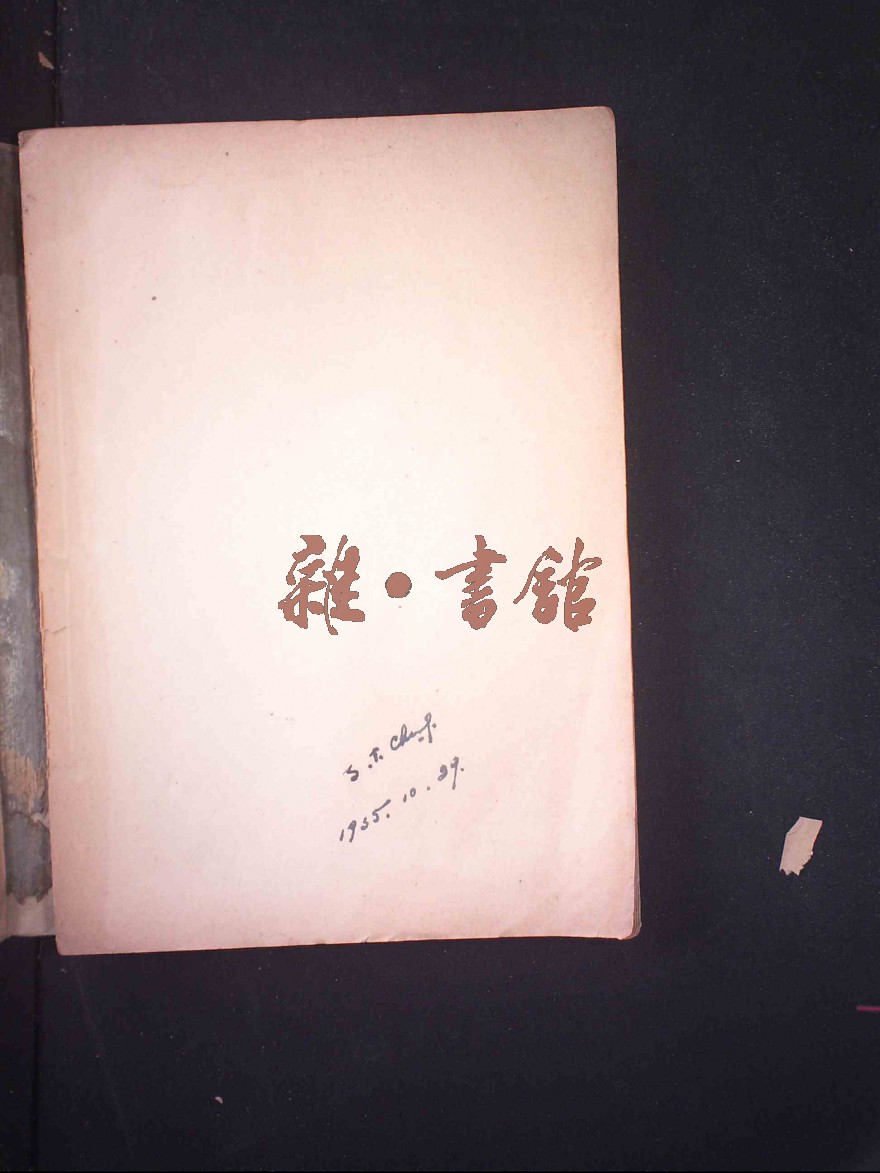 雜·書館
S.T. Chang.
1935.10.29.